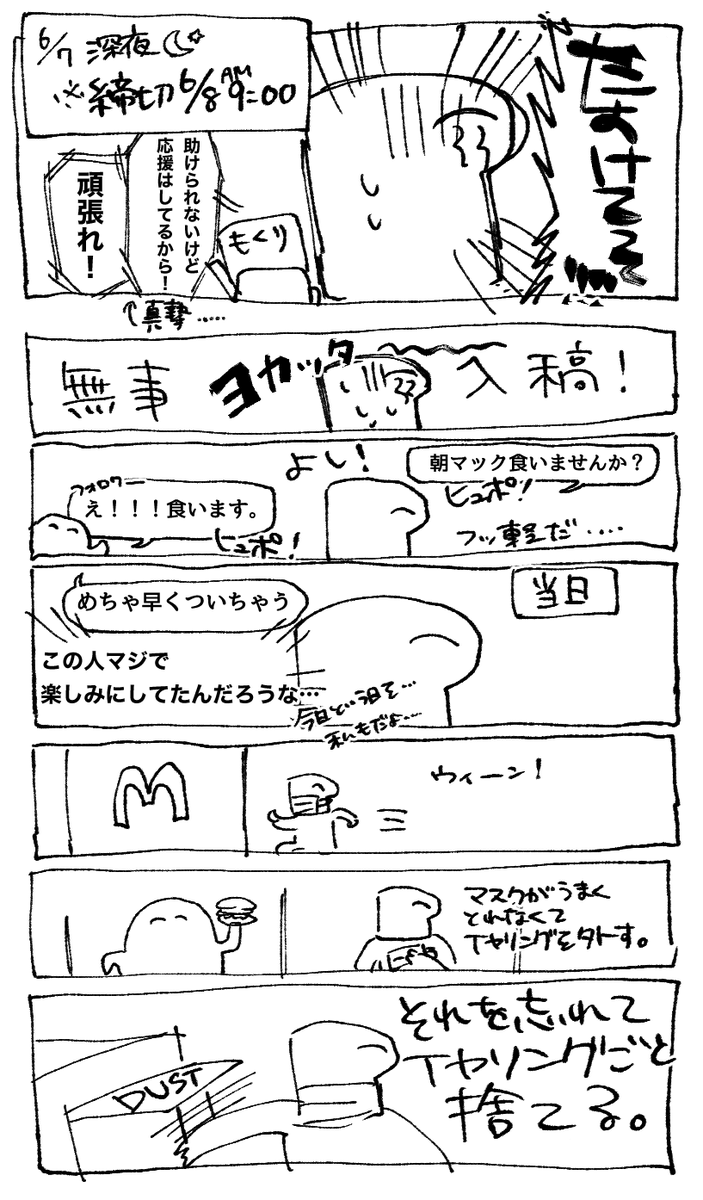 6/7 深夜
※締切6/8 AM9:00
たすけるる
助けられないけど
応援はしてるから！
頑張れ！
もくり
↑真摯……
無事
ヨカッタ
入稿！
朝マック食いませんか？
ヒュポ！
よし！
フォロワー
え！！！食います。
ヒュポ！
フッ軽だ....
当日
めちゃ早くついちゃう
この人マジで
楽しみにしてたんだろうな…
今日という日を…
私もだよ…
M
ウィーン！
マスクがうまく
とれなくて
イヤリングを外す。
それを忘れて
イヤリングごと
捨てる。
DUST